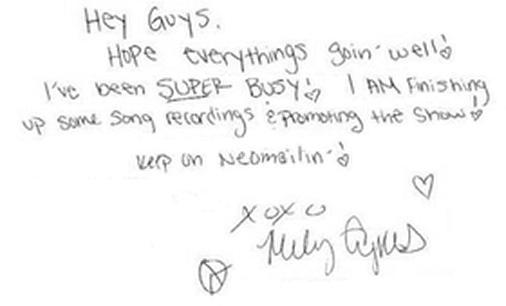 Hey Guys.
Hope everythings goin' well!
I've been SUPER BUSY! I AM Finishing
up some song recordings & promoting the show!
keep on Neomailin'!
XOXO
Miley Cyrus